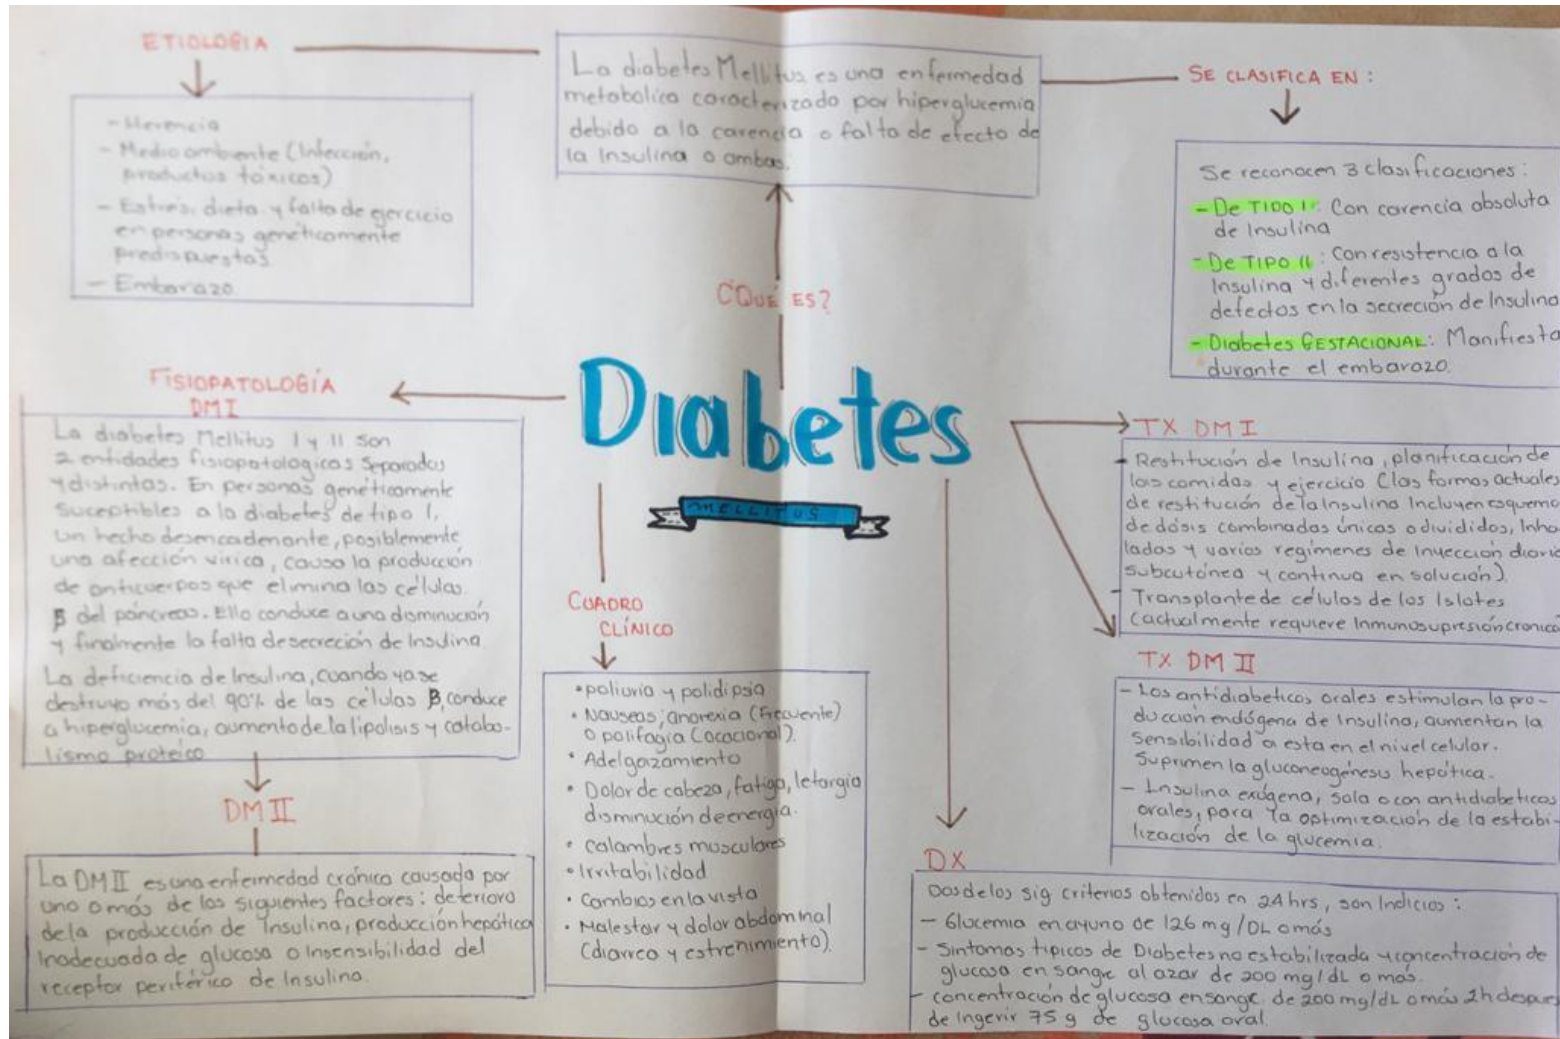 ETIOLOGIA
- Herencia
- Medio ambiente (Infección,
productos tóxicos)
- Estrés, dieta y falta de ejercicio
en personas genéticamente
predispuestas
- Embarazo.
La diabetes Mellitus es una enfermedad
metabolica caracterizado por hiperglucemia
debido a la carencia o falta de efecto de
la Insulina o ambas.
SE CLASIFICA EN :
Se reconocen 3 clasificaciones :
- De TIPO I : Con carencia absoluta
de Insulina
- De TIPO II : Con resistencia a la
Insulina y diferentes grados de
defectos en la secreción de Insulina
- Diabetes GESTACIONAL : Manifiesta
durante el embarazo.
¿QUÉ ES?
Diabetes
MELLITUS
FISIOPATOLOGÍA
DM I
La diabetes Mellitus I y II son
2 entidades fisiopatologicas separadas
y distintas. En personas genéticamente
suceptibles a la diabetes de tipo I,
un hecho desencadenante, posiblemente
una afección virica, causa la producción
de anticuerpos que elimina las células
β del páncreas. Ello conduce a una disminución
y finalmente la falta de secreción de Insulina.
La deficiencia de Insulina, cuando ya se
destruyo más del 90% de las células β, conduce
a hiperglucemia, aumento de la lipolisis y catabo-
lismo proteico
DM II
La DM II es una enfermedad crónica causada por
uno o más de los siguientes factores : deterioro
de la producción de Insulina, producción hepática
Inadecuada de glucosa o Insensibilidad del
receptor periférico de Insulina.
CUADRO
CLÍNICO
• poliuria y polidipsia
• Nauseas; anorexia (Frecuente)
o polifagia (ocacional).
• Adelgazamiento
• Dolor de cabeza, fatiga, letargia
disminución de energía.
• calambres musculares
• Irritabilidad
• Cambios en la vista
• Malestar y dolor abdominal
(diarrea y estreñimiento).
TX DM I
- Restitución de Insulina, planificación de
las comidas y ejercicio (las formas actuales
de restitución de la Insulina Incluyen esquema
de dósis combinadas únicas o divididos, Inha-
ladas y varios regímenes de Inyección diaria
subcutánea y continua en solución).
- Transplante de células de los Islotes
(actualmente requiere Inmunosupresión cronica
TX DM II
- Los antidiabeticos orales estimulan la pro-
ducción endógena de Insulina, aumentan la
sensibilidad a esta en el nivel celular.
Suprimen la gluconeogénesis hepática.
- Insulina exógena, sola o con antidiabeticos
orales, para la optimización de la estabi-
lización de la glucemia.
DX
Dos de los sig criterios obtenidos en 24 hrs, son Indicios :
- Glucemia en ayuno de 126 mg/DL o más
- Sintomas tipicos de Diabetes no estabilizada y concentración de
glucosa en sangre al azar de 200 mg/dL o más.
- concentración de glucosa en sangre de 200 mg/dL o más 2h despues
de Ingerir 75 g de glucosa oral.